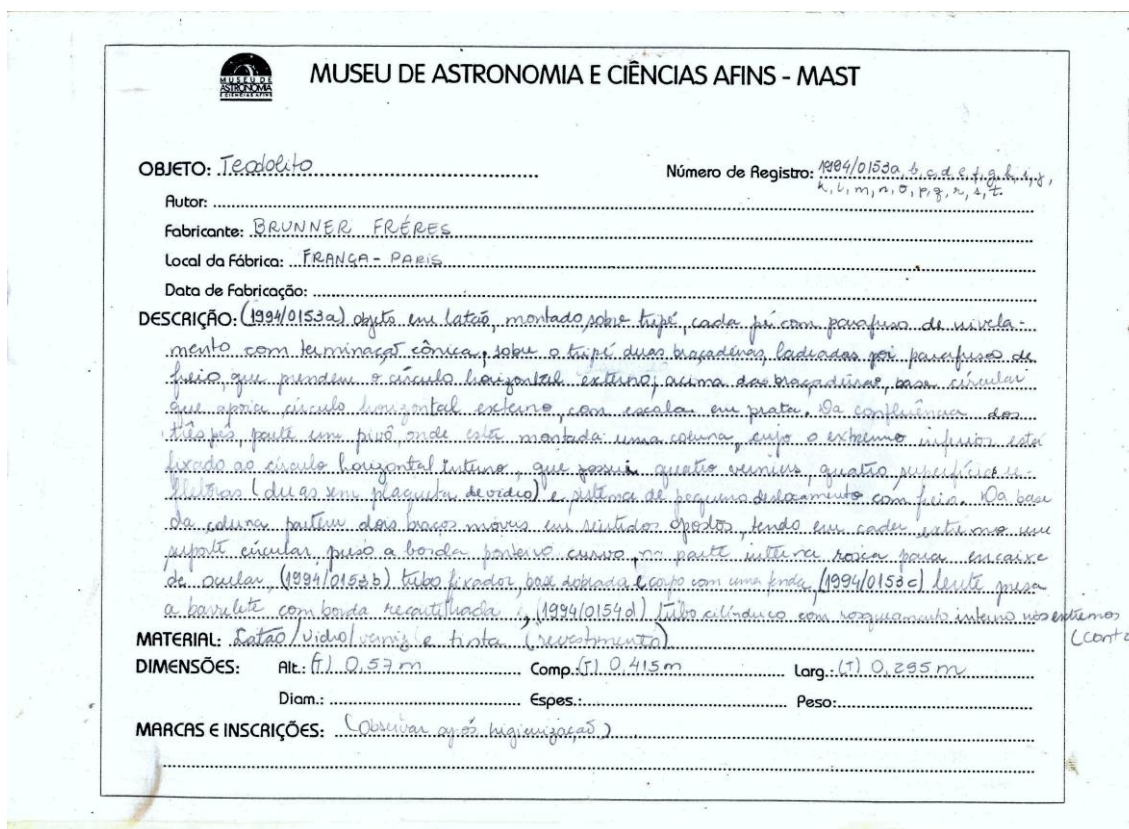 MUSEU DE ASTRONOMIA E CIÊNCIAS AFINS
MUSEU DE ASTRONOMIA E CIÊNCIAS AFINS - MAST
OBJETO: Teodolito
Número de Registro: 1994/0153a, b, c, d, e, f, g, h, i, j,
k, l, m, n, o, p, q, r, s, t.
Autor:
Fabricante: BRUNNER FRÉRES
Local da Fábrica: FRANÇA - PARIS
Data de Fabricação:
DESCRIÇÃO: (1994/0153a) objeto em latão, montado sobre tripé, cada pé com parafuso de nivela-
mento com terminação cônica, sobre o tripé duas braçadeiras, ladeadas por parafuso de
freio, que prendem o círculo horizontal externo; acima das braçadeiras, base circular
que apoia círculo horizontal externo, com escala em prata. Da confluência dos
três pés, parte um pivô, onde está montada uma coluna, cujo o extremo inferior está
fixado ao círculo horizontal interno, que possui quatro verniers, quatro superfícies re-
fletoras (duas sem plaqueta de vidro) e sistema de pequeno deslocamento com freio. Da base
da coluna partem dois braços móveis em sentidos opostos, tendo em cada extremo um
suporte circular, preso a borda curvo, na parte interna rosca para encaixe
de ocular, (1994/0153b) tubo fixador, base dobrada e corpo com uma fenda, (1994/0153c) lente presa
a barrilete com borda recartilhada, (1994/0154d) tubo cilíndrico com rosqueamento interno nos extremos
(cont
MATERIAL: Latão/vidro/verniz e tinta (revestimento)
DIMENSÕES: Alt.: (T) 0,57m Comp.: (T) 0,415m Larg.: (T) 0,295m
Diam.: Espes.: Peso:
MARCAS E INSCRIÇÕES: (Observar após higienização)